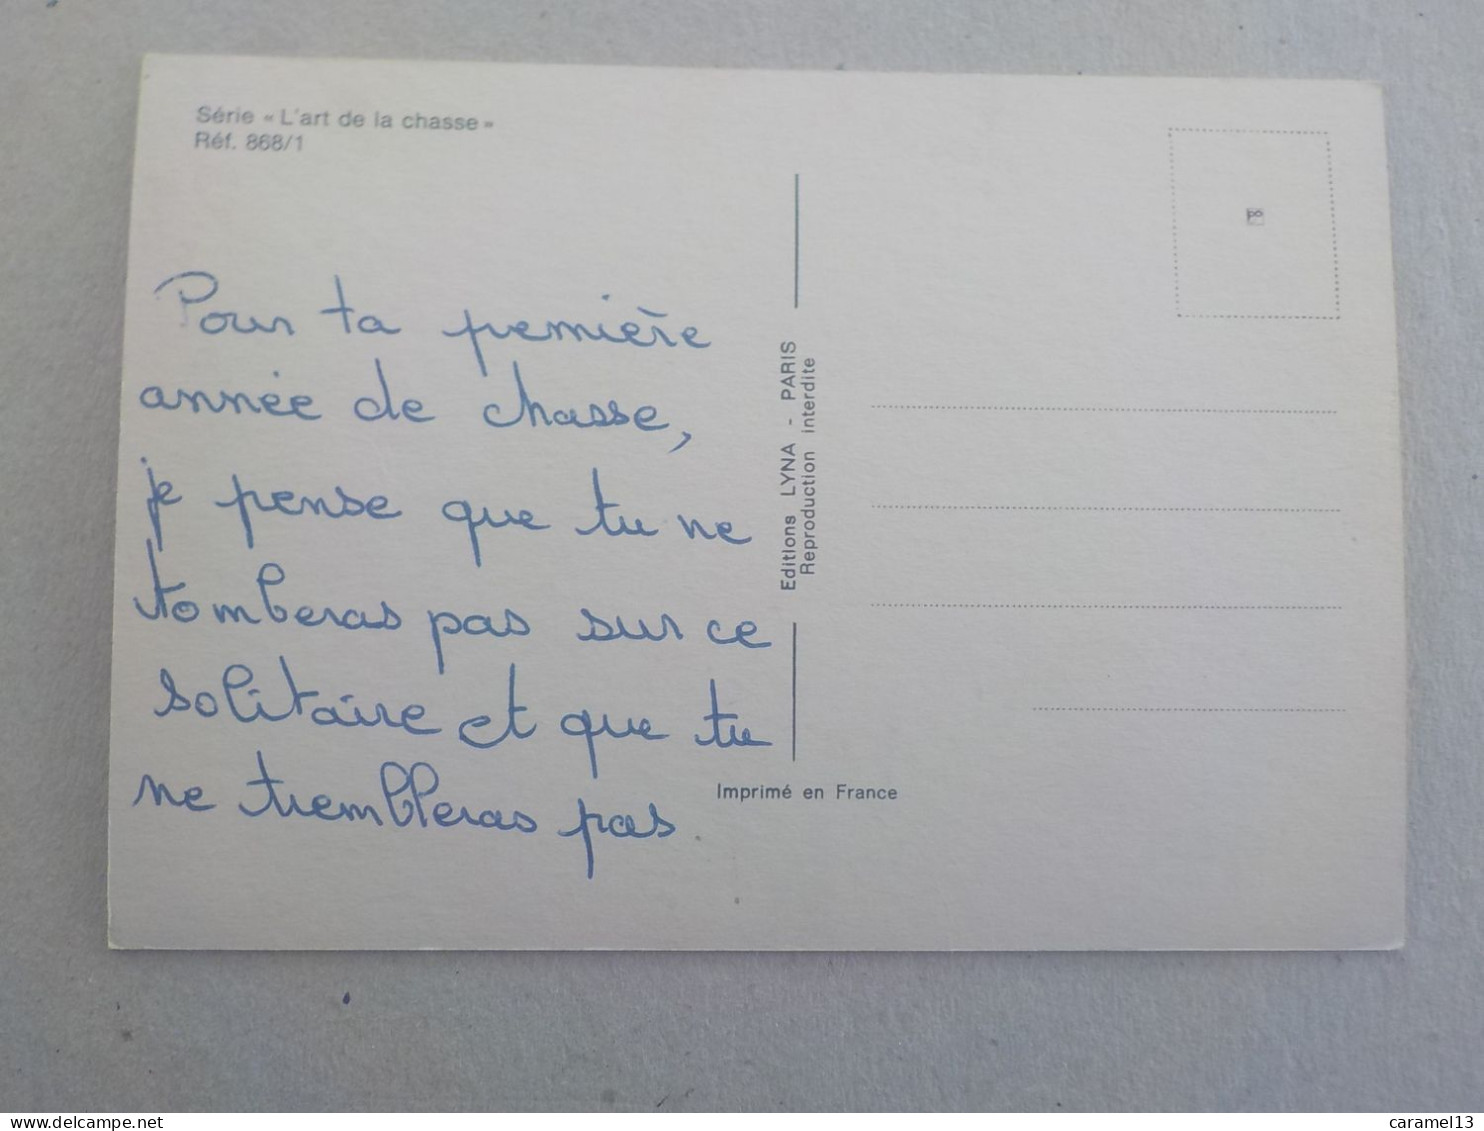 Série « L'art de la chasse »
Réf. 868/1
Pour ta pemière
année de chasse,
je pense que tu ne
tomberas pas sur ce
solitaire et que tu
ne trembleras pas
Editions LYNA - PARIS
Reproduction interdite
Imprimé en France
www.delcampe.net
caramel13